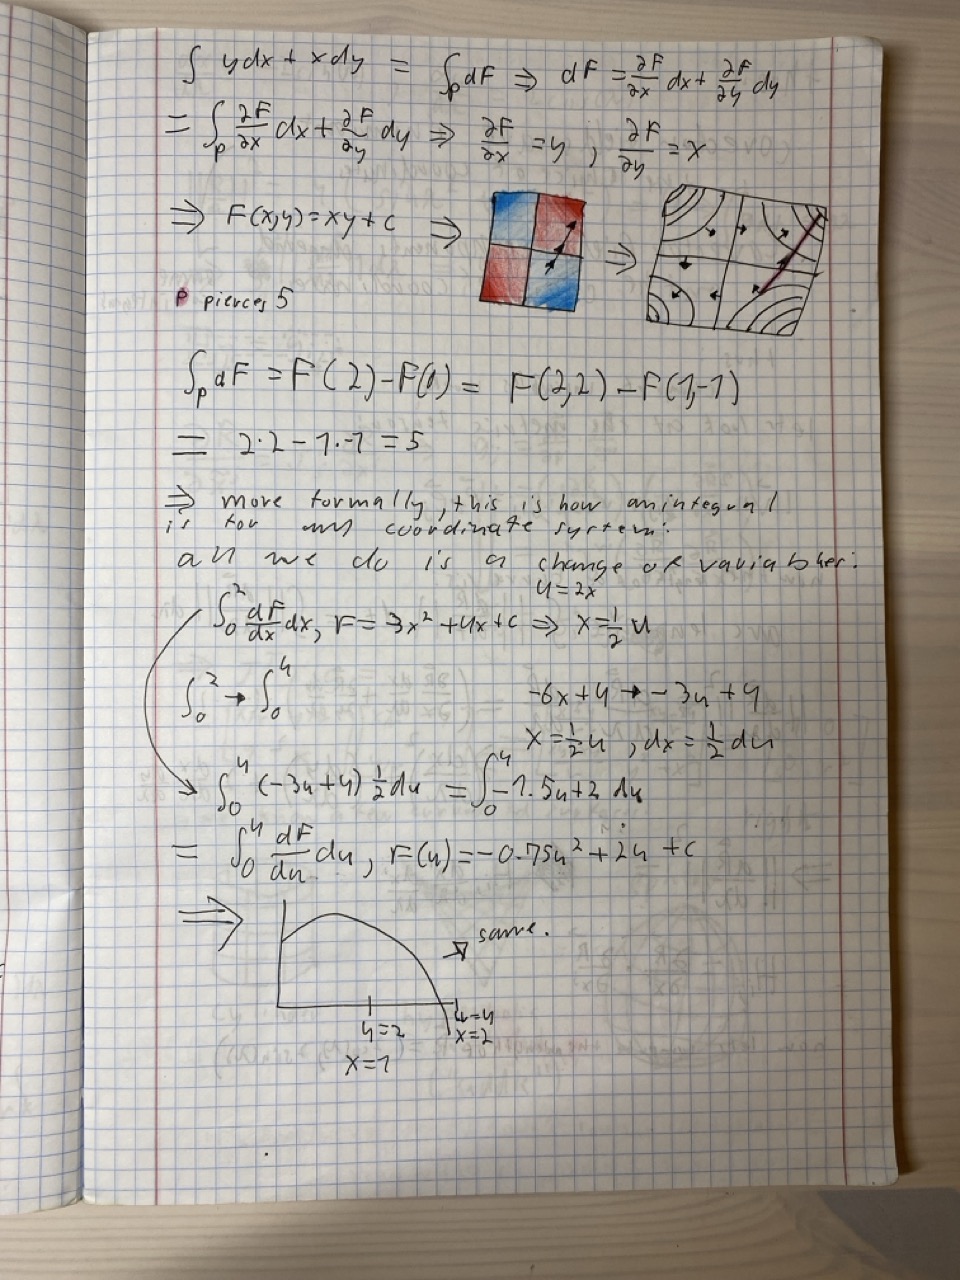 ∫ ydx + xdy = ∫_P dF ⇒ dF = ∂F/∂x dx + ∂F/∂y dy
= ∫_P ∂F/∂x dx + ∂F/∂y dy ⇒ ∂F/∂x = y , ∂F/∂y = x
⇒ F(x,y) = xy + c ⇒ ⇒
P pierces 5
∫_P dF = F(2) - F(1) = F(2,2) - F(1,-1)
= 2·2 - 1·-1 = 5
⇒ more formally, this is how an integral
is for any coordinate system:
all we do is a change of variables:
u = 2x
∫_0^2 dF/dx dx, F = -3x² + 4x + c ⇒ x = 1/2 u
∫_0^2 → ∫_0^4 -6x + 4 → -3u + 4
x = 1/2 u , dx = 1/2 du
∫_0^4 (-3u + 4) 1/2 du = ∫_0^4 -1.5u + 2 du
= ∫_0^4 dF/du du , F(u) = -0.75u² + 2u + c
⇒ same.
u=2 u=4
x=1 x=2